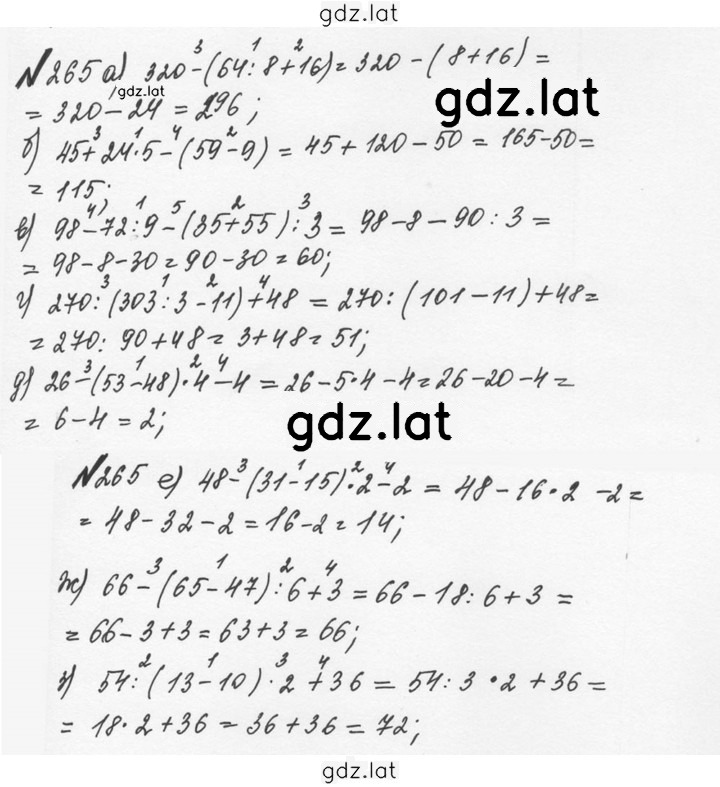 gdz.lat
№265 а) 320-(64:8+16)=320-(8+16)=
/gdz.lat
=320-24=296;
gdz.lat
б) 45+24·5-(59-9)=45+120-50=165-50=
=115;
в) 98-72:9-(35+55):3=98-8-90:3=
=98-8-30=90-30=60;
г) 270:(303:3-11)+48=270:(101-11)+48=
=270:90+48=3+48=51;
д) 26-(53-48)·4-4=26-5·4-4=26-20-4=
=6-4=2;
gdz.lat
№265 е) 48-(31-15)·2-2=48-16·2-2=
=48-32-2=16-2=14;
ж) 66-(65-47):6+3=66-18:6+3=
=66-3+3=63+3=66;
з) 54:(13-10)·2+36=54:3·2+36=
=18·2+36=36+36=72;
gdz.lat